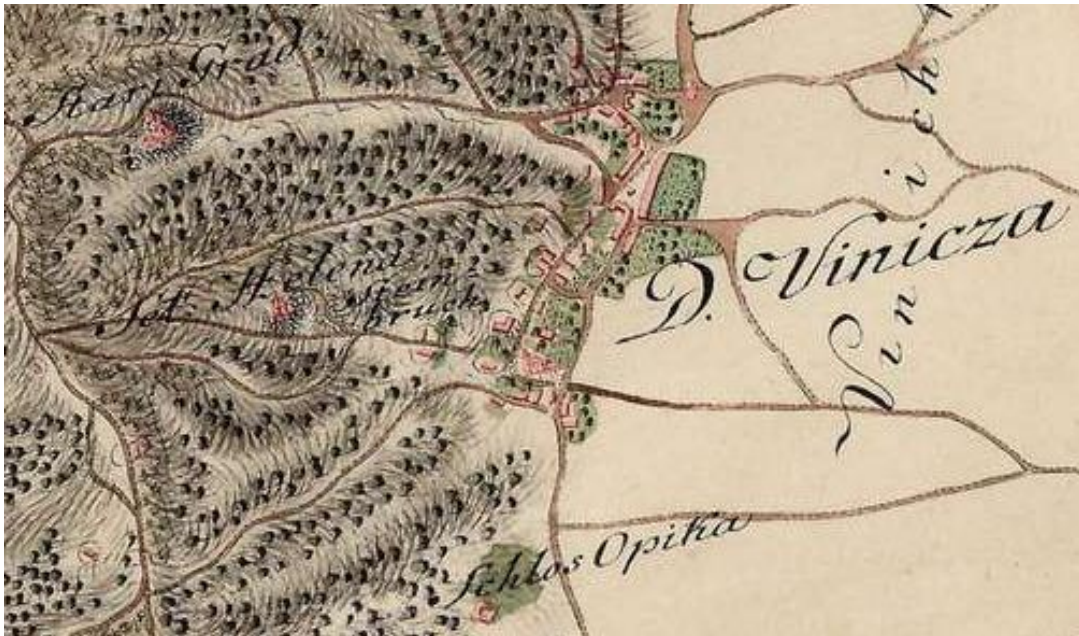 Stari Grad
Sct. Helena
Stein
bruch
D. Vinicza
Vinich
Schlos Opika